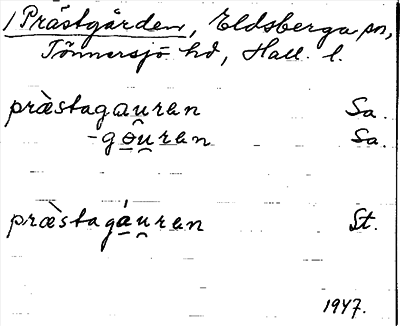 1 Prästgården, Eldsberga sn,
Tönnersjö hd, Hall. l.
præ̀stagau̯ran Sa.
-gɵu̯ran Sa.
præ̀stagáu̯ran St.
1947.